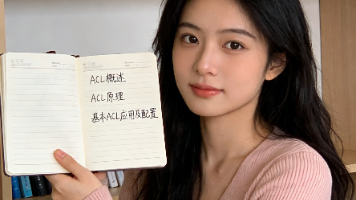 ACL概述
ACL原理
基本ACL应用及配置